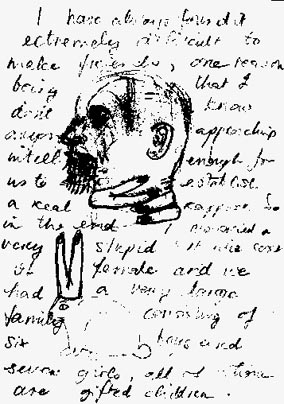 I have always found it
extremely difficult to
make friends, one reason
being that I
don't know
anyone approaching
intell enough for
us to establish
a real rapport. So
in the end I married a
very stupid
female and we
had a very large
family consisting of
six boys and
seven girls, all of whom
are gifted children.